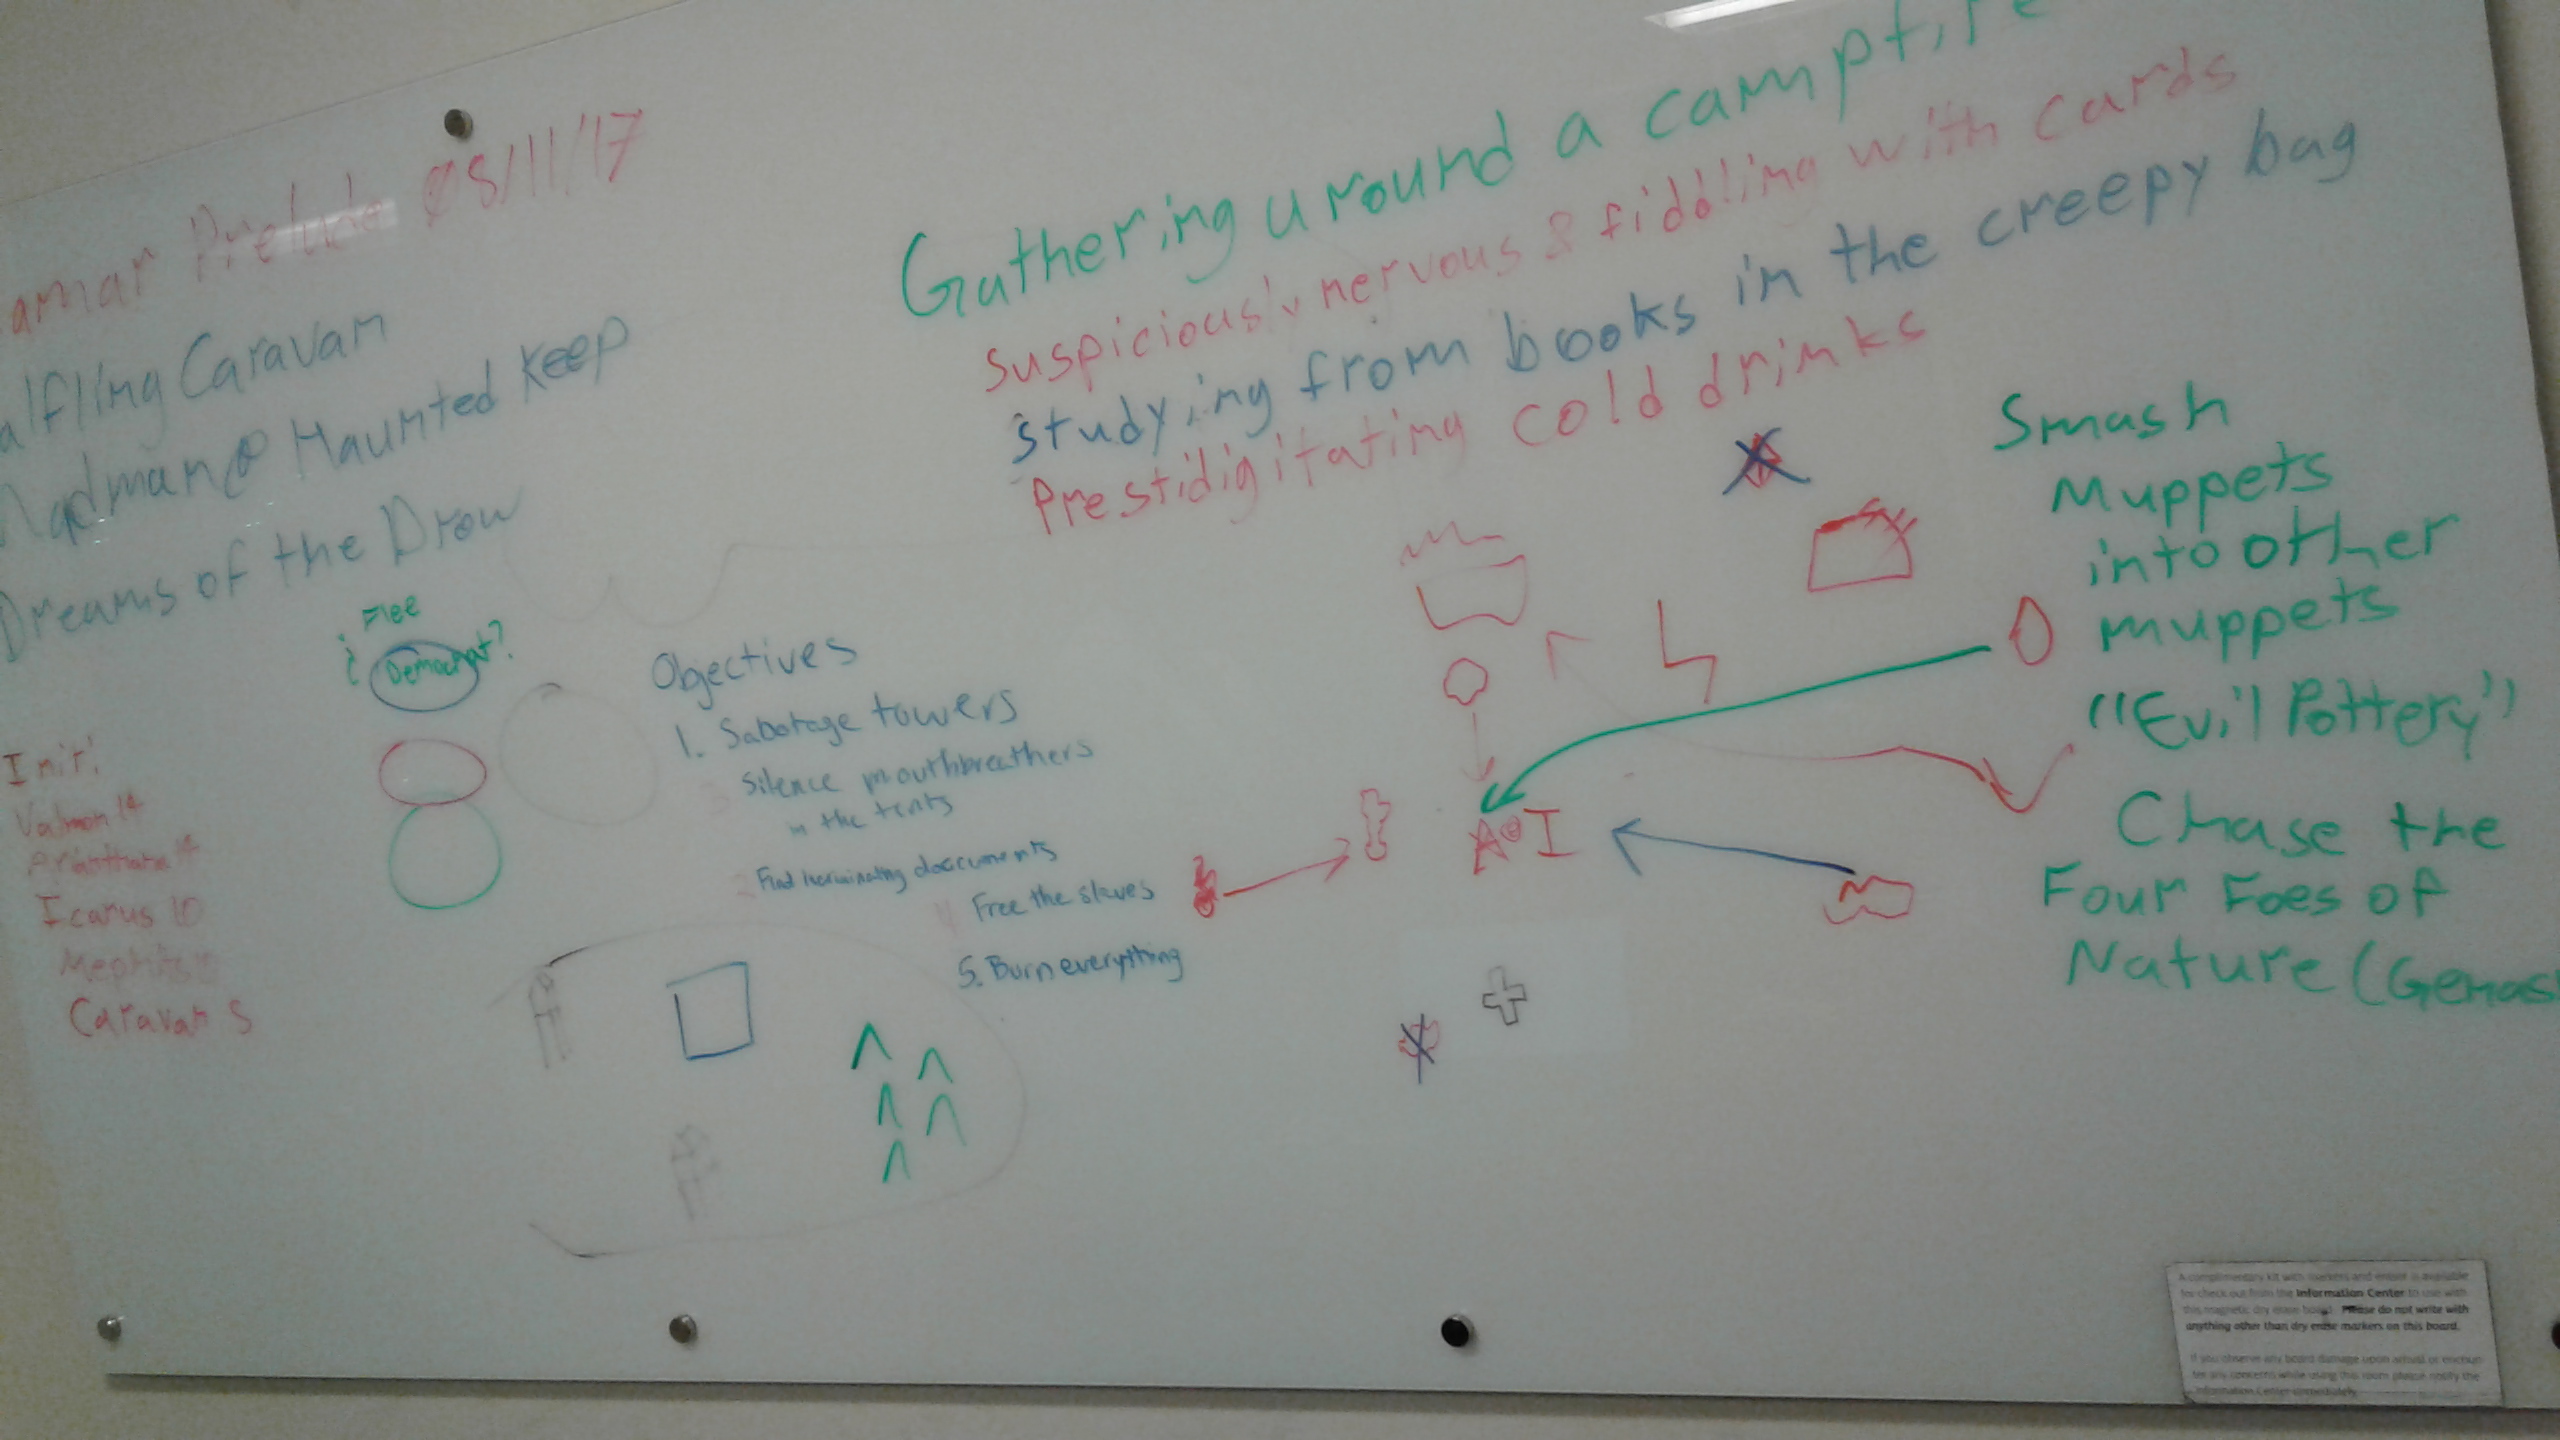 amar Prelude 08/11/17
alfling Caravan
Madman @ Haunted Keep
Dreams of the Drow
Gathering around a campfire
Suspiciously nervous & fiddling with cards
Studying from books in the creepy bag
Prestidigitating cold drinks
Flee
Democrat?
Objectives
1. Sabotage towers
3 Silence mouthbreathers
in the tents
2 Find incriminating doccuments
4 Free the slaves
5. Burn everything
Init:
Valmon 14
Arianthana 14
Icarus 10
Mephits
Caravan 5
A I
Smash
Muppets
into other
muppets
"Evil Pottery"
Chase the
Four Foes of
Nature (Gemas
A complimentary kit with markers and eraser is available
for check out from the Information Center to use with
this magnetic dry erase board. Please do not write with
anything other than dry erase markers on this board.
If you observe any board damage upon arrival or encoun-
ter any concerns while using this room please notify the
Information Center immediately.